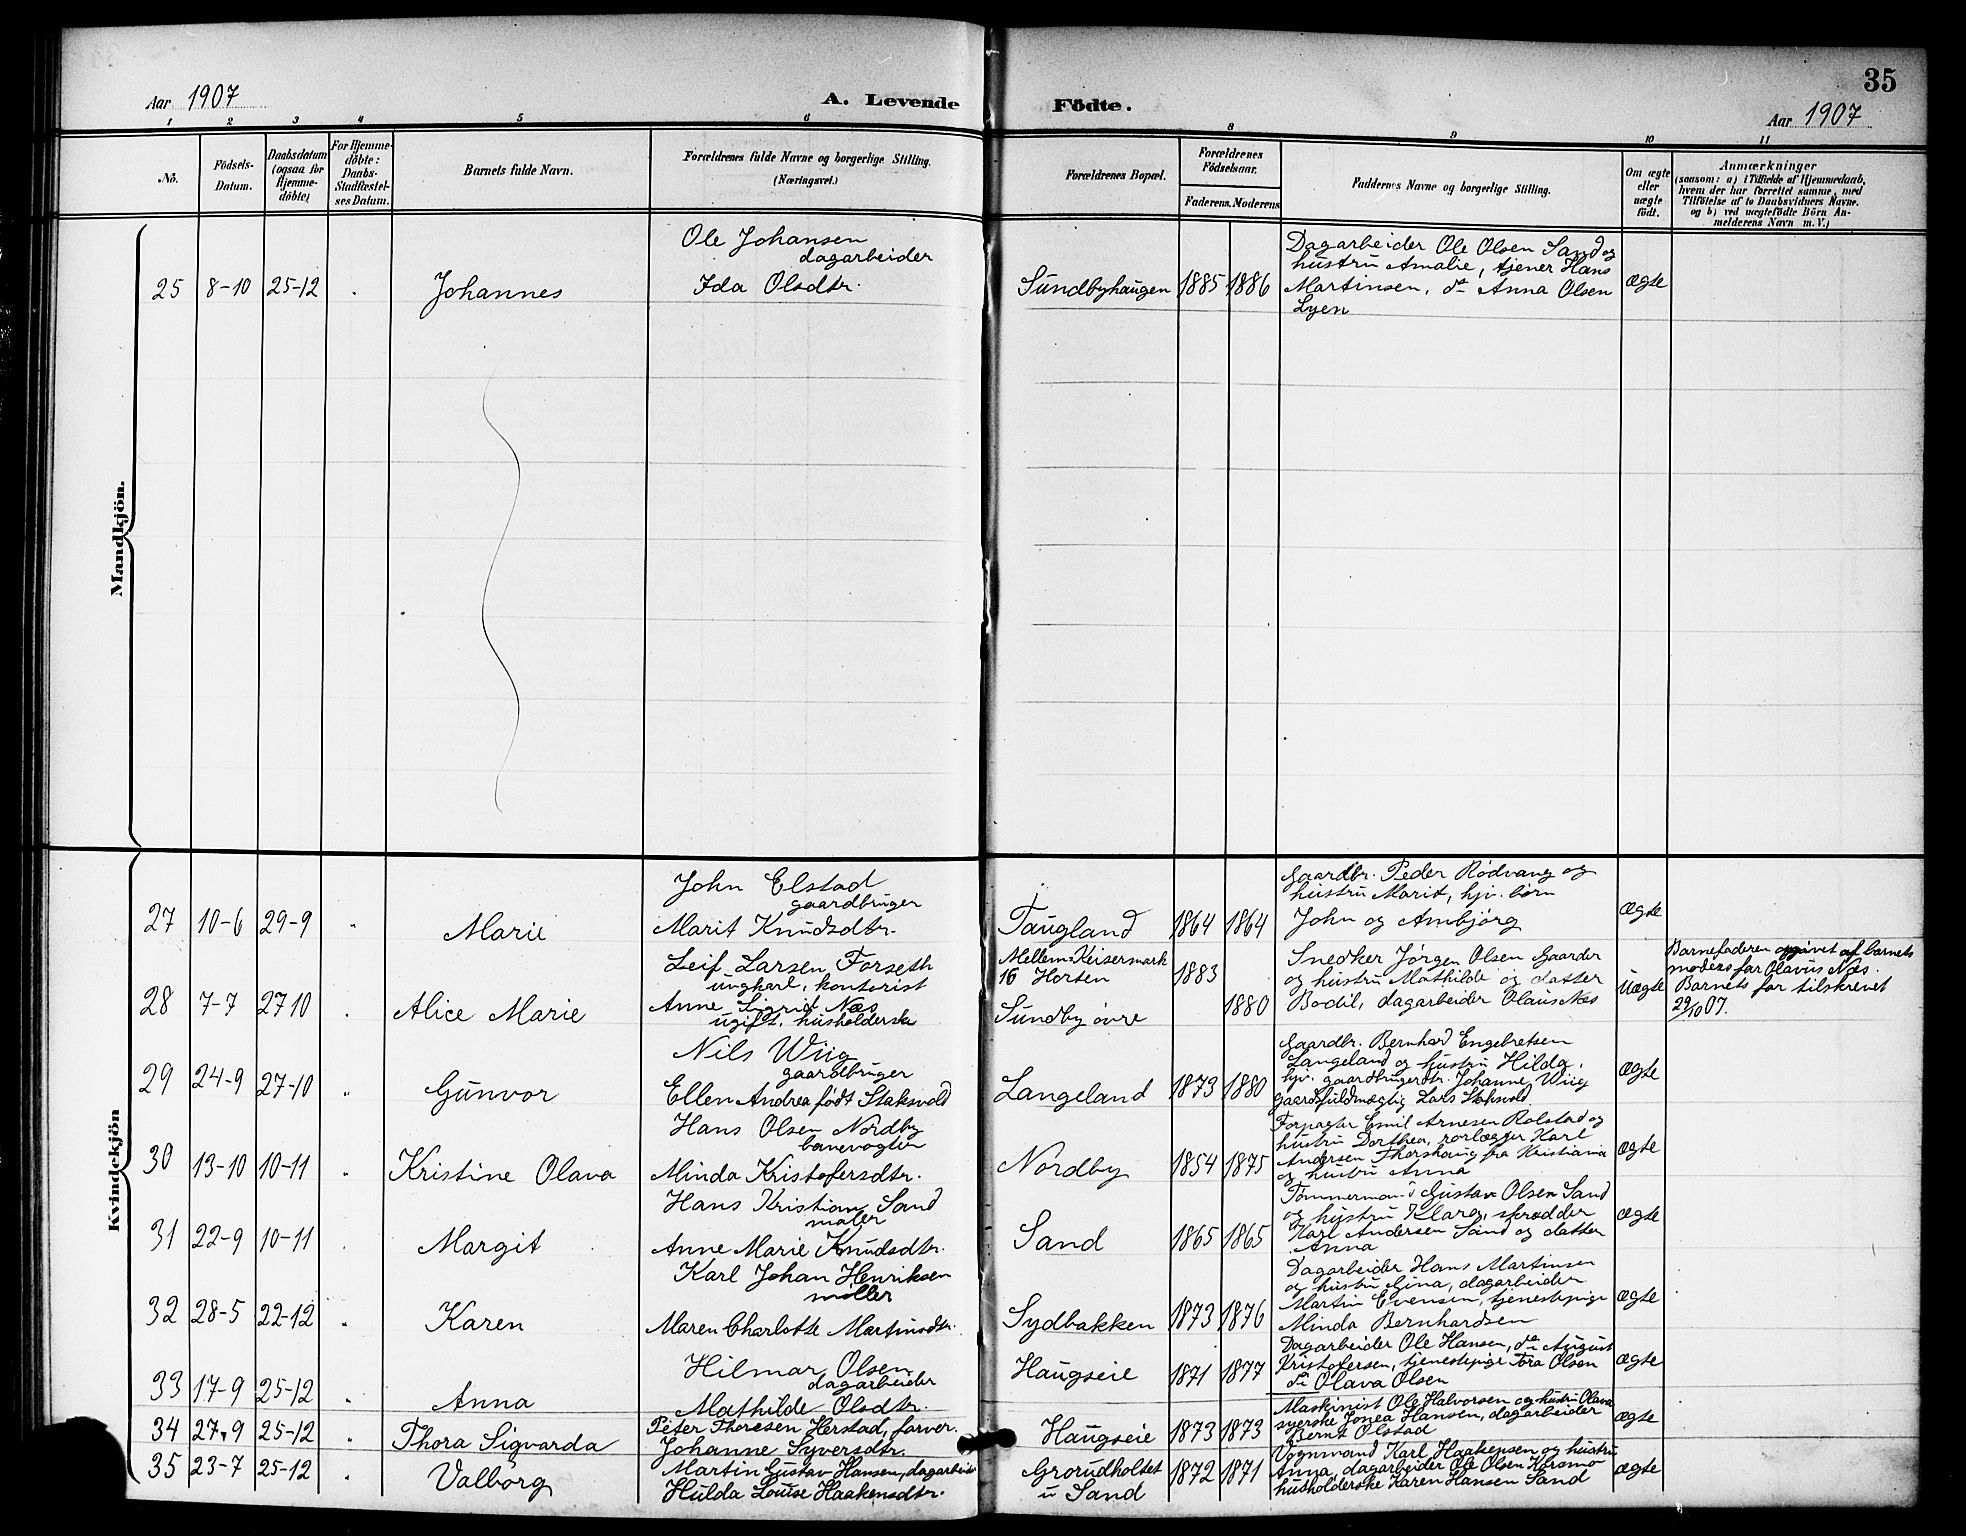 35
Aar 1907
A. Levende Födte.
Aar 1907
1 2 3 4 5 6 8 9 10 11
No.
Födsels-
Datum.
Daabsdatum
(ogsaa for
Hjemme-
döbte)
For Hjemme-
döbte:
Daabs-
Stadfæstel-
ses Datum.
Barnets fulde Navn.
Forældrenes fulde Navne og borgerlige Stilling.
(Næringsvei.)
Forældrenes Bopæl.
Forældrenes
Födselsaar.
Faderens. Moderens
Faddernes Navne og borgerlige Stilling.
Om ægte
eller
uægte
födt.
Anmærkninger
(saasom: a) i Tilfælde af Hjemmedaab,
hvem der har forrettet samme, med
Tilföielse af to Daabsvidners Navne.
og b) ved uægtefödte Börn An-
melderens Navn m.V.)
Mandkjön.
25 8-10 25-12 Johannes
Ole Johansen
dagarbeider
Ida Olsdtr.
Sundbyhaugen 1885 1886
Dagarbeider Ole Olsen Sand og
hustru Amalie, tjener Hans
Martinsen, do Anna Olsen
Lyen
Ægte
Kvindekjön
27 10-6 29-9 Marie
John Elstad
gaardbruger
Marit Knudsdtr.
Taugland 1864 1864
Gaardbr. Peder Rødvang og
hustru Marit, hjv. børn
John og Ambjørg
Ægte
28 7-7 27 10 Alice Marie
Leif Larsen Forseth
ungkarl, kontorist
Anne Sigrid Næs
ugift, husholderske
Mellem-Keisermark
16 Horten 1883
Sundby øvre 1880
Snedker Jørgen Olsen Gaarder
og hustru Mathilde og datter
Bodil, dagarbeider Olaus Næs
Uægte
Barnefaderen opgivet af barnets
moders far Olavus Næs.
Barnets far tilskrevet
29/10 07.
29 24-9 27-10 Gunvor
Nils Wiig
gaardbruger
Ellen Andrea født Staksvold
Langeland 1873 1880
Gaardbr. Bernhard Engebretsen
Langeland og hustru Hilda,
hjv. gaardbrugerdtr. Johanne Wiig
gaardsfuldmægtig Lars Staksvold.
Ægte
30 13-10 10-11 Kristine Olava
Hans Olsen Nordby
banevogter
Minda Kristofersdtr.
Nordby 1854 1875
Forpagter Emil Arnesen Rolstad og
hustru Dorthea, rørlægger Karl
Andersen Thorshaug fra Kristiania
og hustru Anna
Ægte
31 22-9 10-11 Margit
Hans Kristian Sand
maler
Anne Marie Knudsdtr.
Sand 1865 1865
Tømmermand Gustav Olsen Sand
og hustru Klara, skrædder
Karl Andersen Sand og datter
Anna
Ægte
32 28-5 22-12 Karen
Karl Johan Henriksen
møller
Maren Charlotte Martinsdtr.
Sydbakken 1873 1876
Dagarbeider Hans Martinsen
og hustru Gina, dagarbeider
Martin Evensen, tjenestepige
Minda Bernhardsen
Ægte
33 17-9 25-12 Anna
Hilmar Olsen
dagarbeider
Mathilde Olsdtr.
Haugseie 1871 1877
Dagarbeider Ole Hansen, do August
Kristofersen, tjenestepige Tora Olsen
do Olava Olsen
Ægte
34 27-9 25-12 Thora Sigvarda
Peter Thoresen Herstad, farver.
Johanne Syversdtr.
Haugseie 1873 1873
Maskinist Ole Halvorsen og hustru Olava
syerske Jonea Hansen, dagarbeider
Bernt Olstad
Ægte
35 23-7 25-12 Valborg
Martin Gustav Hansen, dagarbeider
Hulda Louise Haakensdtr.
Grorudholtet
u Sand 1872 1871
Vognmand Karl Haakensen og hustru
Anna, dagarbeider Ole Olsen Korsmo
husholderske Karen Hansen Sand
Ægte